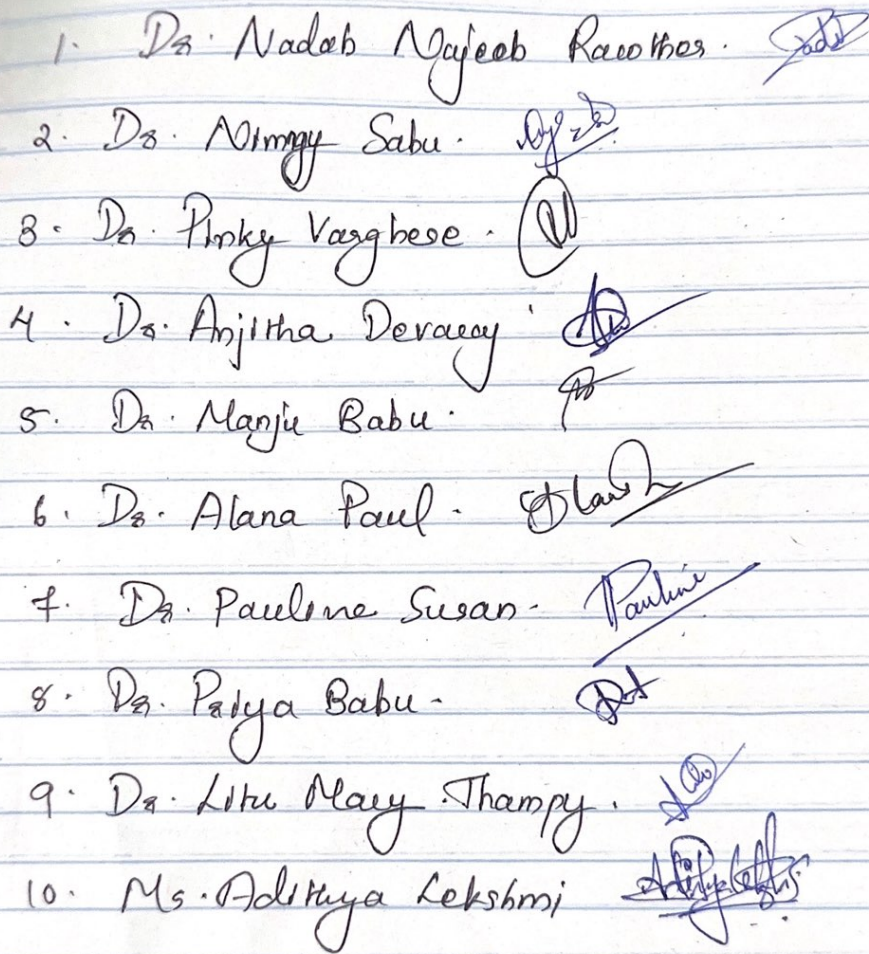 1. Dr. Nadab Najeeb Rawther.
2. Dr. Nimmy Sabu.
3. Dr. Pinky Varghese.
4. Dr. Anjitha Devaray
5. Dr. Manju Babu.
6. Dr. Alana Paul.
7. Dr. Pauline Susan- Pauline
8. Dr. Priya Babu-
9. Dr. Litu Mary Thampy.
10. Ms. Adithya Lekshmi